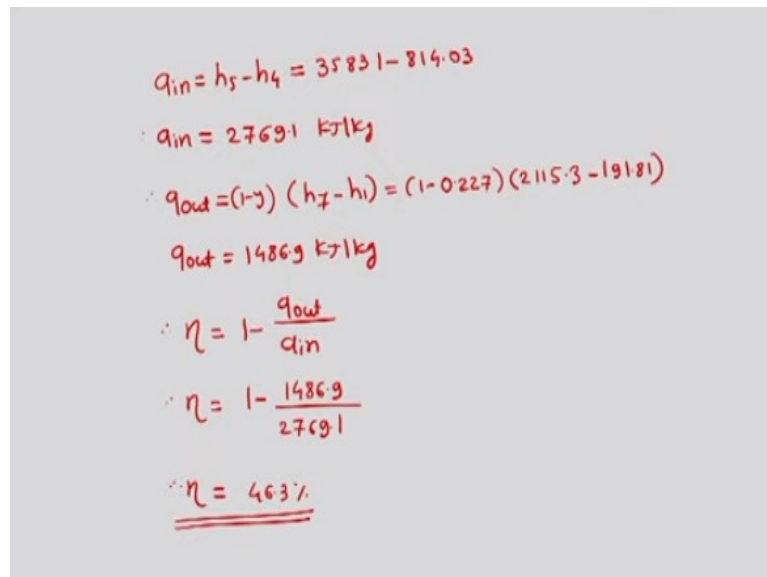 qin = h5 - h4 = 3583.1 - 814.03
∴ qin = 2769.1 kJ/kg
∴ qout = (1-y) (h7 - h1) = (1 - 0.227) (2115.3 - 191.81)
qout = 1486.9 kJ/kg
∴ η = 1 - qout / qin
∴ η = 1 - 1486.9 / 2769.1
∴ η = 46.3 %